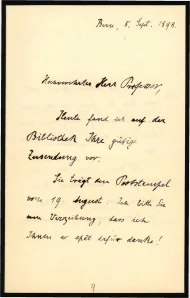 Bern, 8. Sept. 1898.
Hochverehrter Herr Professor,
Heute fand ich auf der
Bibliothek Ihre gütige
Zusendung vor.
Sie trägt den Poststempel
vom 19. August. Ich bitte Sie
um Verzeihung, dass ich
Ihnen so spät dafür danke!